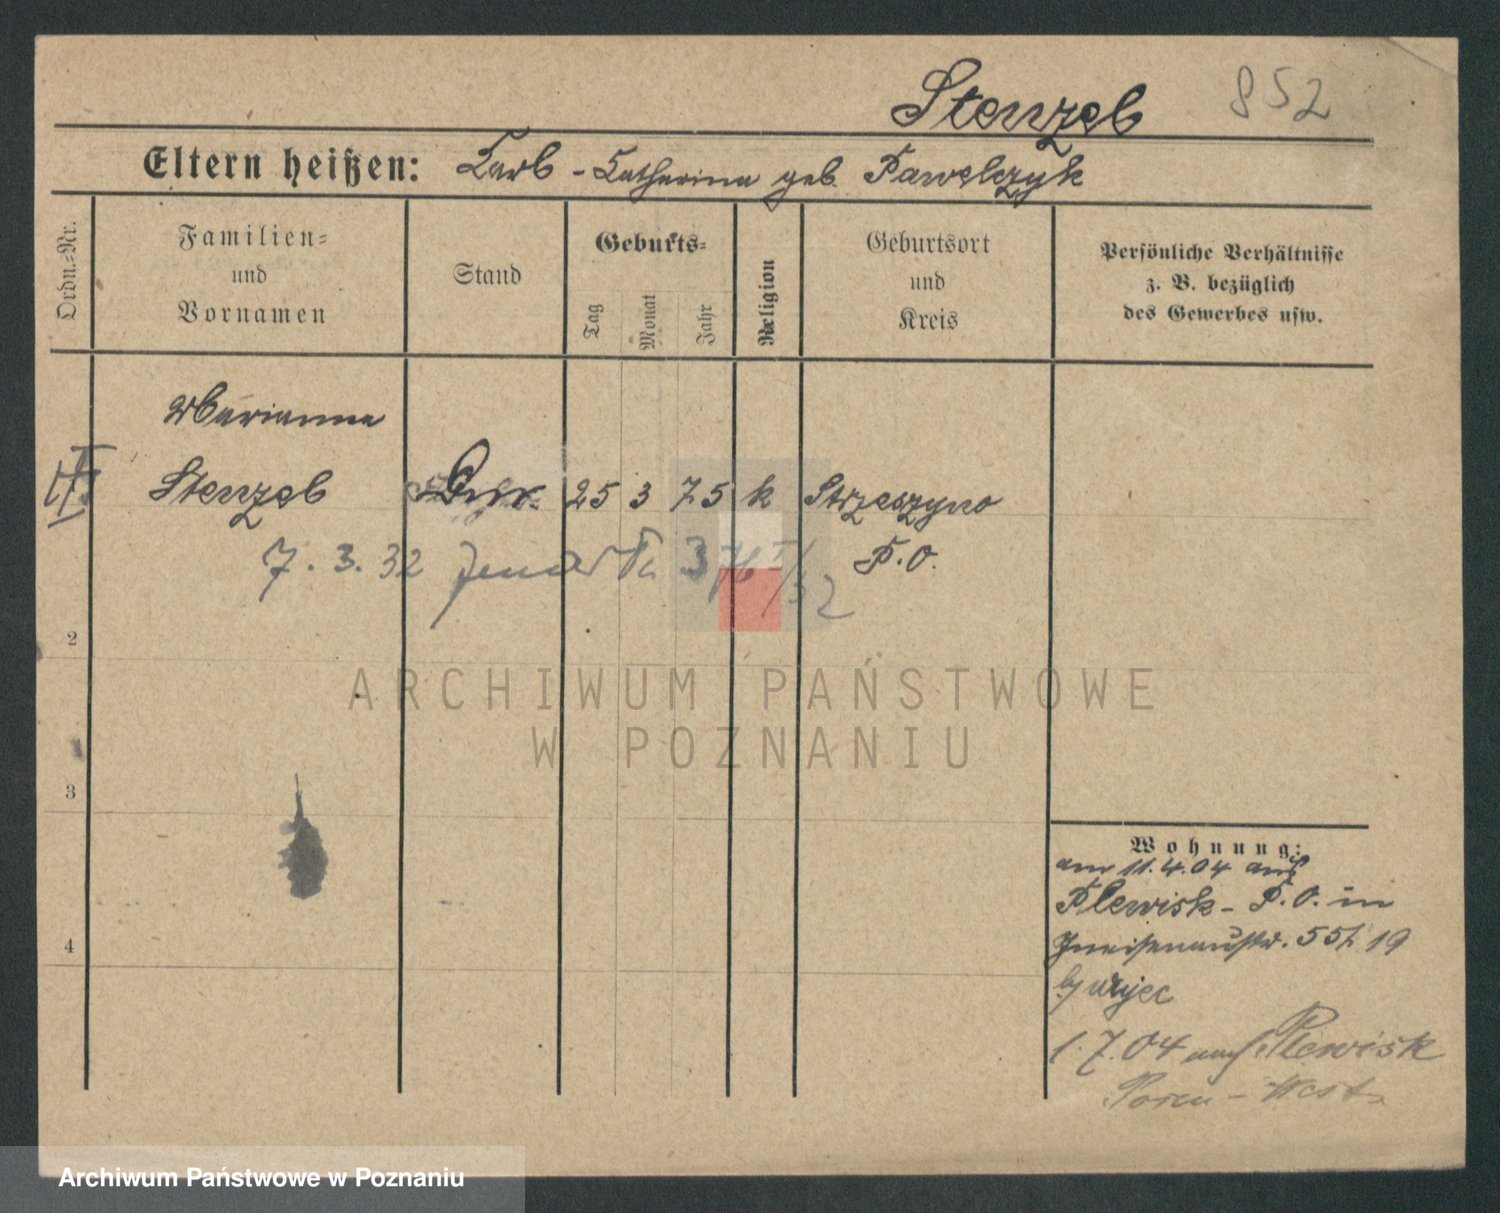 Stenzel 852
Eltern heißen: Karl - Katharina geb. Pawelczyk
Ordn.=Nr.
Familien=
und
Vornamen
Stand
Geburts=
Tag
Monat
Jahr
Religion
Geburtsort
und
Kreis
Persönliche Verhältnisse
z. B. bezüglich
des Gewerbes usw.
Marianna
Stenzel 25 3 75 k Strzeszyno
7. 3. 32 P. O.
2
3
4
ARCHIWUM PAŃSTWOWE
W POZNANIU
Wohnung:
am 11.4.04 aus
Plewisk - P. O. in
Gneisenaustr. 19
1.7.04 nach Plewisk
Posen - West
Archiwum Państwowe w Poznaniu